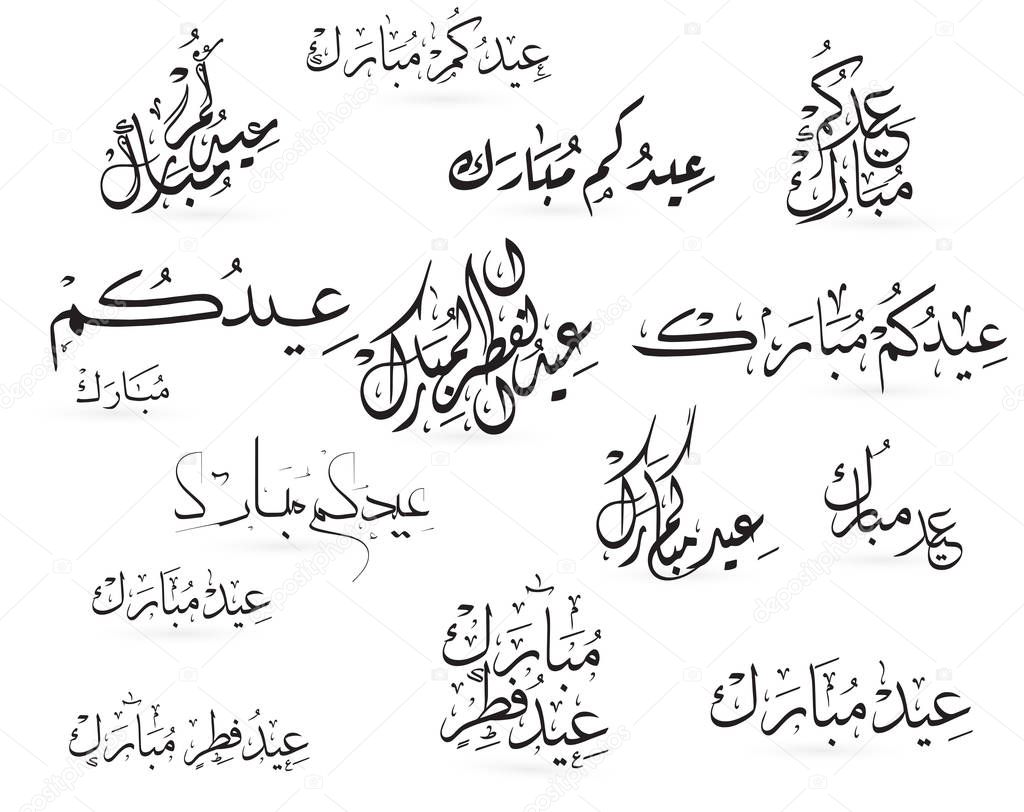 عيدكم مبارك
عيدكم مبارك
عيدكم مبارك
عيدكم
مبارك
عيدكم
مبارك
عيد الفطر المبارك
عيدكم مبارك
عيدكم مبارك
عيدكم مبارك
عيد مبارك
عيد مبارك
مبارك
عيد فطر
عيد مبارك
عيد فطر مبارك
depositphotos